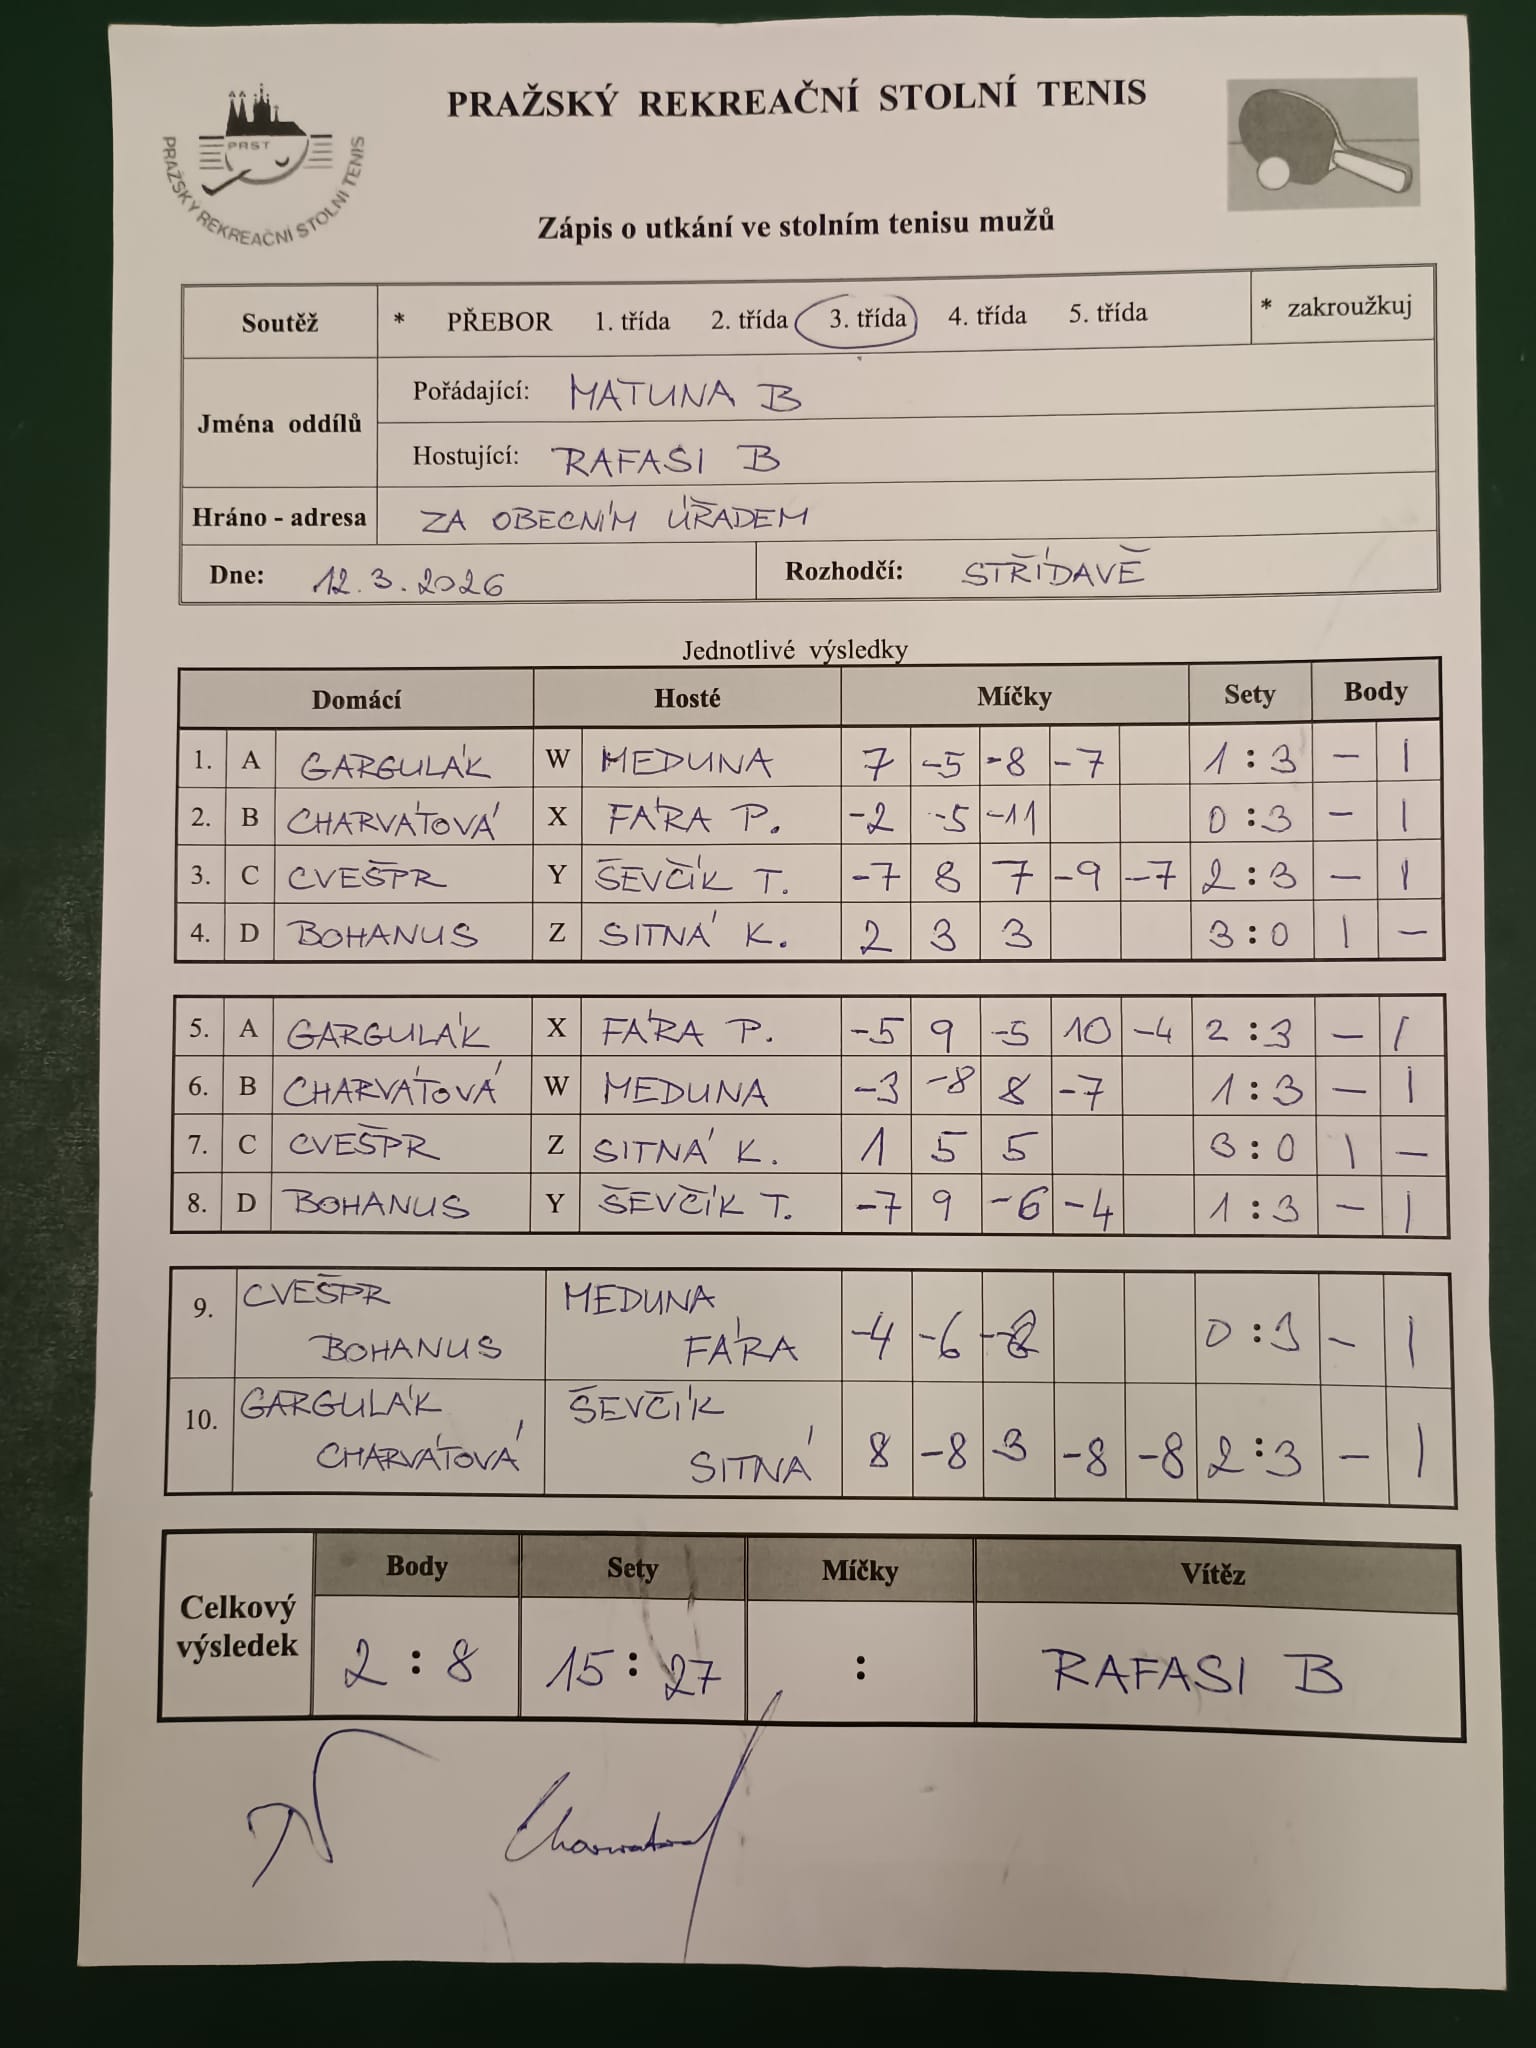 PRAŽSKÝ REKREAČNÍ STOLNÍ TENIS
PRST
PRAŽSKÝ REKREAČNÍ STOLNÍ TENIS
Zápis o utkání ve stolním tenisu mužů
Soutěž * PŘEBOR 1. třída 2. třída 3. třída 4. třída 5. třída * zakroužkuj
Jména oddílů
Pořádající: MATUNA B
Hostující: RAFASI B
Hráno - adresa ZA OBECNÍM ÚŘADEM
Dne: 12.3.2026 Rozhodčí: STŘÍDAVĚ
Jednotlivé výsledky
Domácí Hosté Míčky Sety Body
1. A GARGULÁK W MEDUNA 7 -5 -8 -7 1 : 3 - 1
2. B CHARVÁTOVÁ X FÁRA P. -2 -5 -11 0 : 3 - 1
3. C CVEŠPR Y ŠEVČÍK T. -7 8 7 -9 -7 2 : 3 - 1
4. D BOHANUS Z SITNÁ K. 2 3 3 3 : 0 1 -
5. A GARGULÁK X FÁRA P. -5 9 -5 10 -4 2 : 3 - 1
6. B CHARVÁTOVÁ W MEDUNA -3 -8 8 -7 1 : 3 - 1
7. C CVEŠPR Z SITNÁ K. 1 5 5 3 : 0 1 -
8. D BOHANUS Y ŠEVČÍK T. -7 9 -6 -4 1 : 3 - 1
CVEŠPR MEDUNA
9. BOHANUS FÁRA -4 -6 0 : 3 - 1
GARGULÁK ŠEVČÍK
10. CHARVÁTOVÁ SITNÁ 8 -8 3 -8 -8 2 : 3 - 1
Celkový výsledek
Body Sety Míčky Vítěz
2 : 8 15 : 27 : RAFASI B
Charvátová